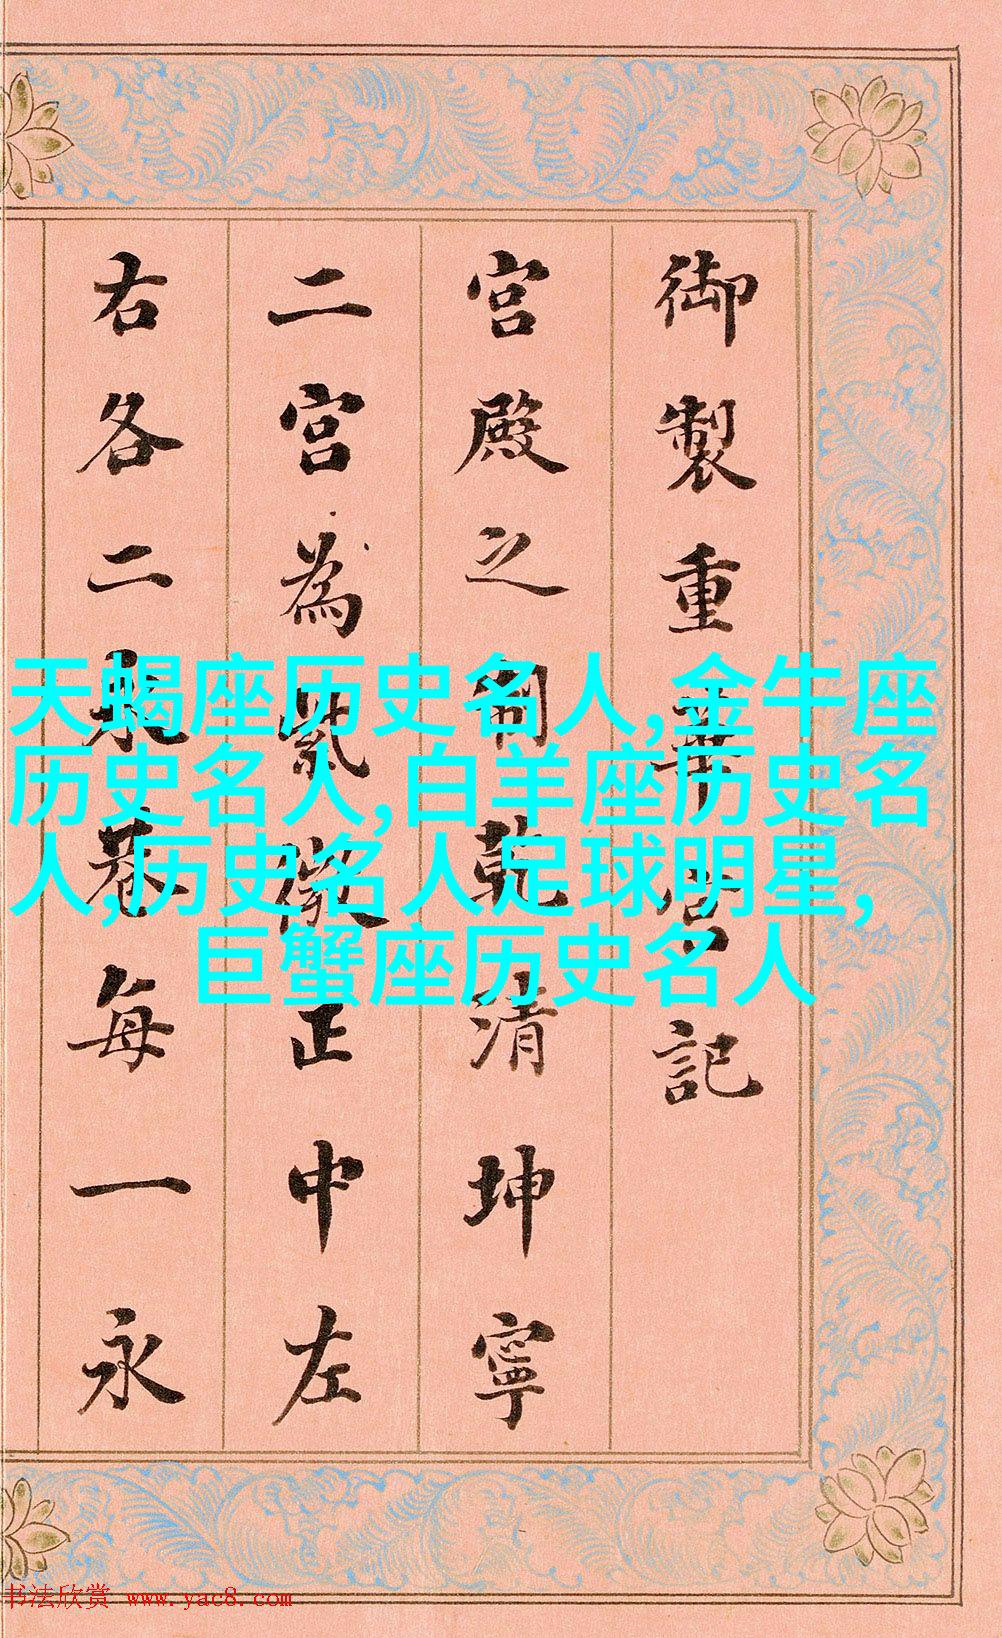 御製重華宮記
宮殿之制乾清坤寧
二宮為紫微正中左
右各二永巷每一永
天蝎座历史名人,金牛座
历史名人,白羊座历史名
人,历史名人足球明星,
巨蟹座历史名人
书法欣赏 www.yac8.com